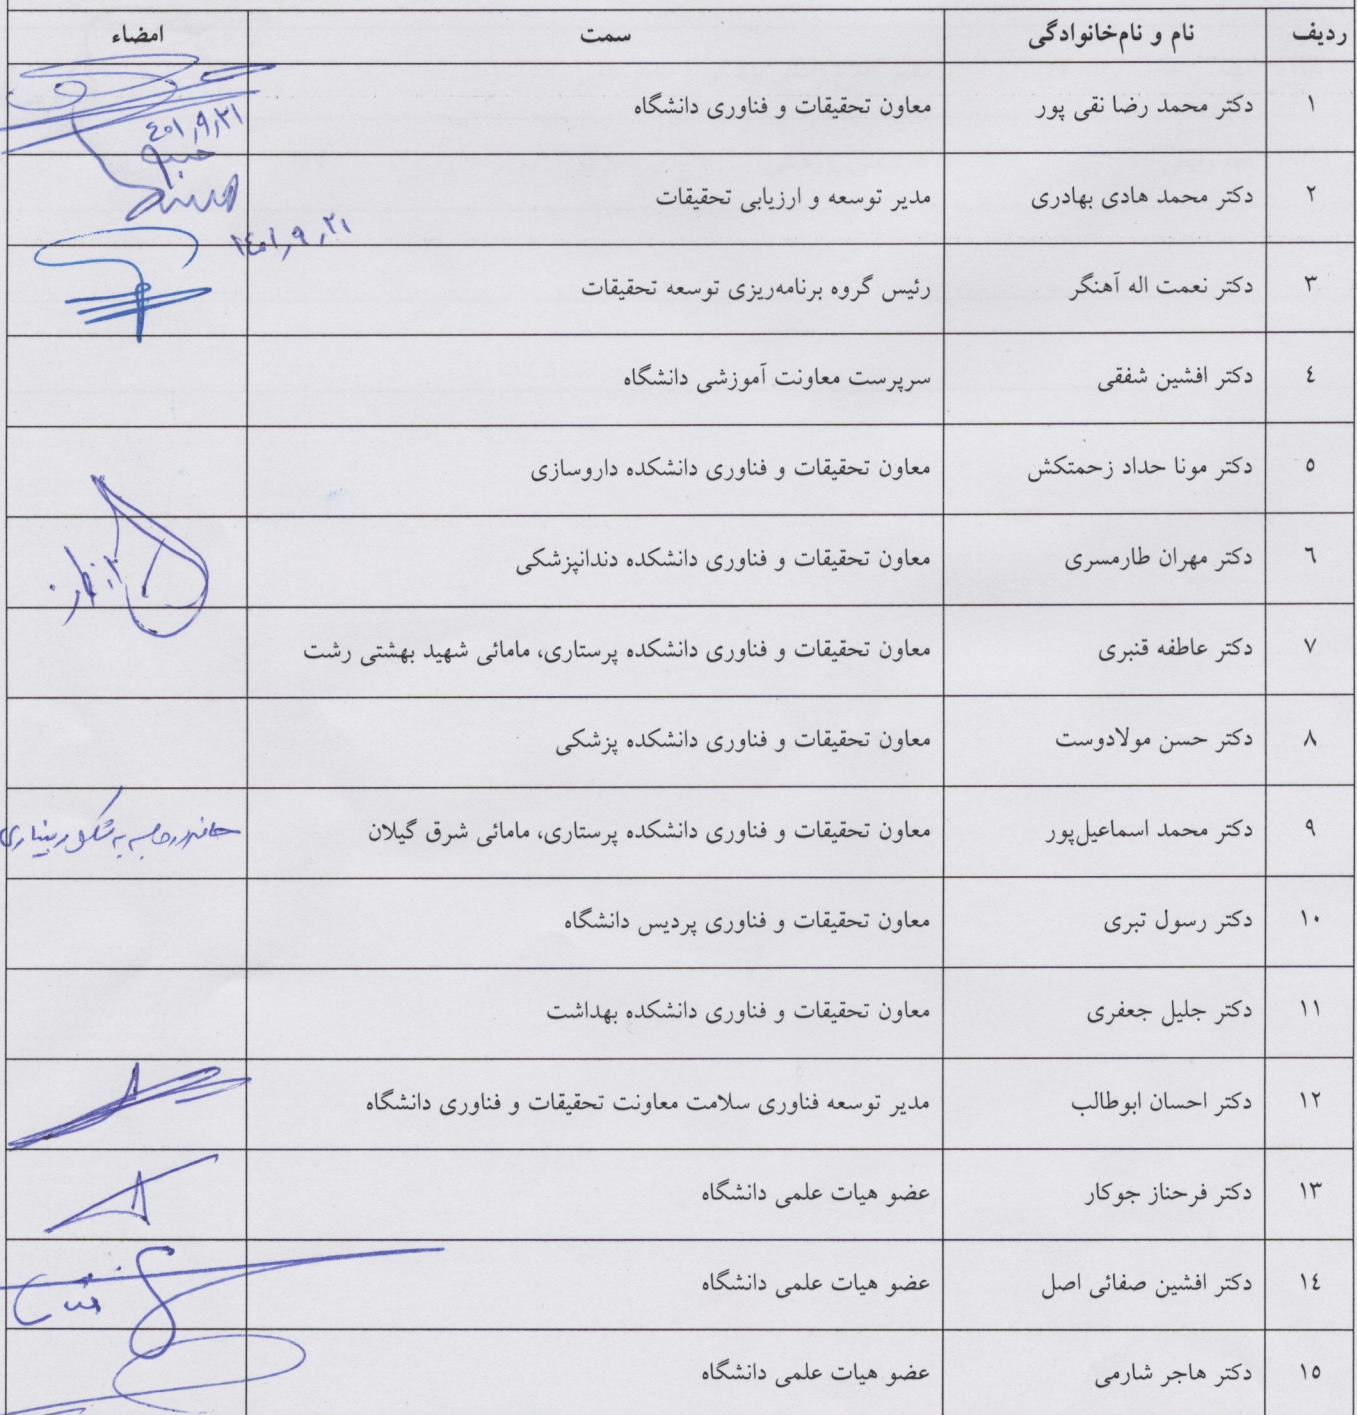 ردیف نام و نام‌خانوادگی سمت امضاء
۱ دکتر محمد رضا نقی پور معاون تحقیقات و فناوری دانشگاه
۴۰۱٫۹٫۲۱
۲ دکتر محمد هادی بهادری مدیر توسعه و ارزیابی تحقیقات
۱۴۰۱٫۹٫۲۱
۳ دکتر نعمت اله آهنگر رئیس گروه برنامه‌ریزی توسعه تحقیقات
٤ دکتر افشین شفقی سرپرست معاونت آموزشی دانشگاه
٥ دکتر مونا حداد زحمتکش معاون تحقیقات و فناوری دانشکده داروسازی
٦ دکتر مهران طارمسری معاون تحقیقات و فناوری دانشکده دندانپزشکی
۷ دکتر عاطفه قنبری معاون تحقیقات و فناوری دانشکده پرستاری، مامائی شهید بهشتی رشت
۸ دکتر حسن مولادوست معاون تحقیقات و فناوری دانشکده پزشکی
۹ دکتر محمد اسماعیل‌پور معاون تحقیقات و فناوری دانشکده پرستاری، مامائی شرق گیلان
۱۰ دکتر رسول تبری معاون تحقیقات و فناوری پردیس دانشگاه
۱۱ دکتر جلیل جعفری معاون تحقیقات و فناوری دانشکده بهداشت
۱۲ دکتر احسان ابوطالب مدیر توسعه فناوری سلامت معاونت تحقیقات و فناوری دانشگاه
۱۳ دکتر فرحناز جوکار عضو هیات علمی دانشگاه
۱٤ دکتر افشین صفائی اصل عضو هیات علمی دانشگاه
۱٥ دکتر هاجر شارمی عضو هیات علمی دانشگاه